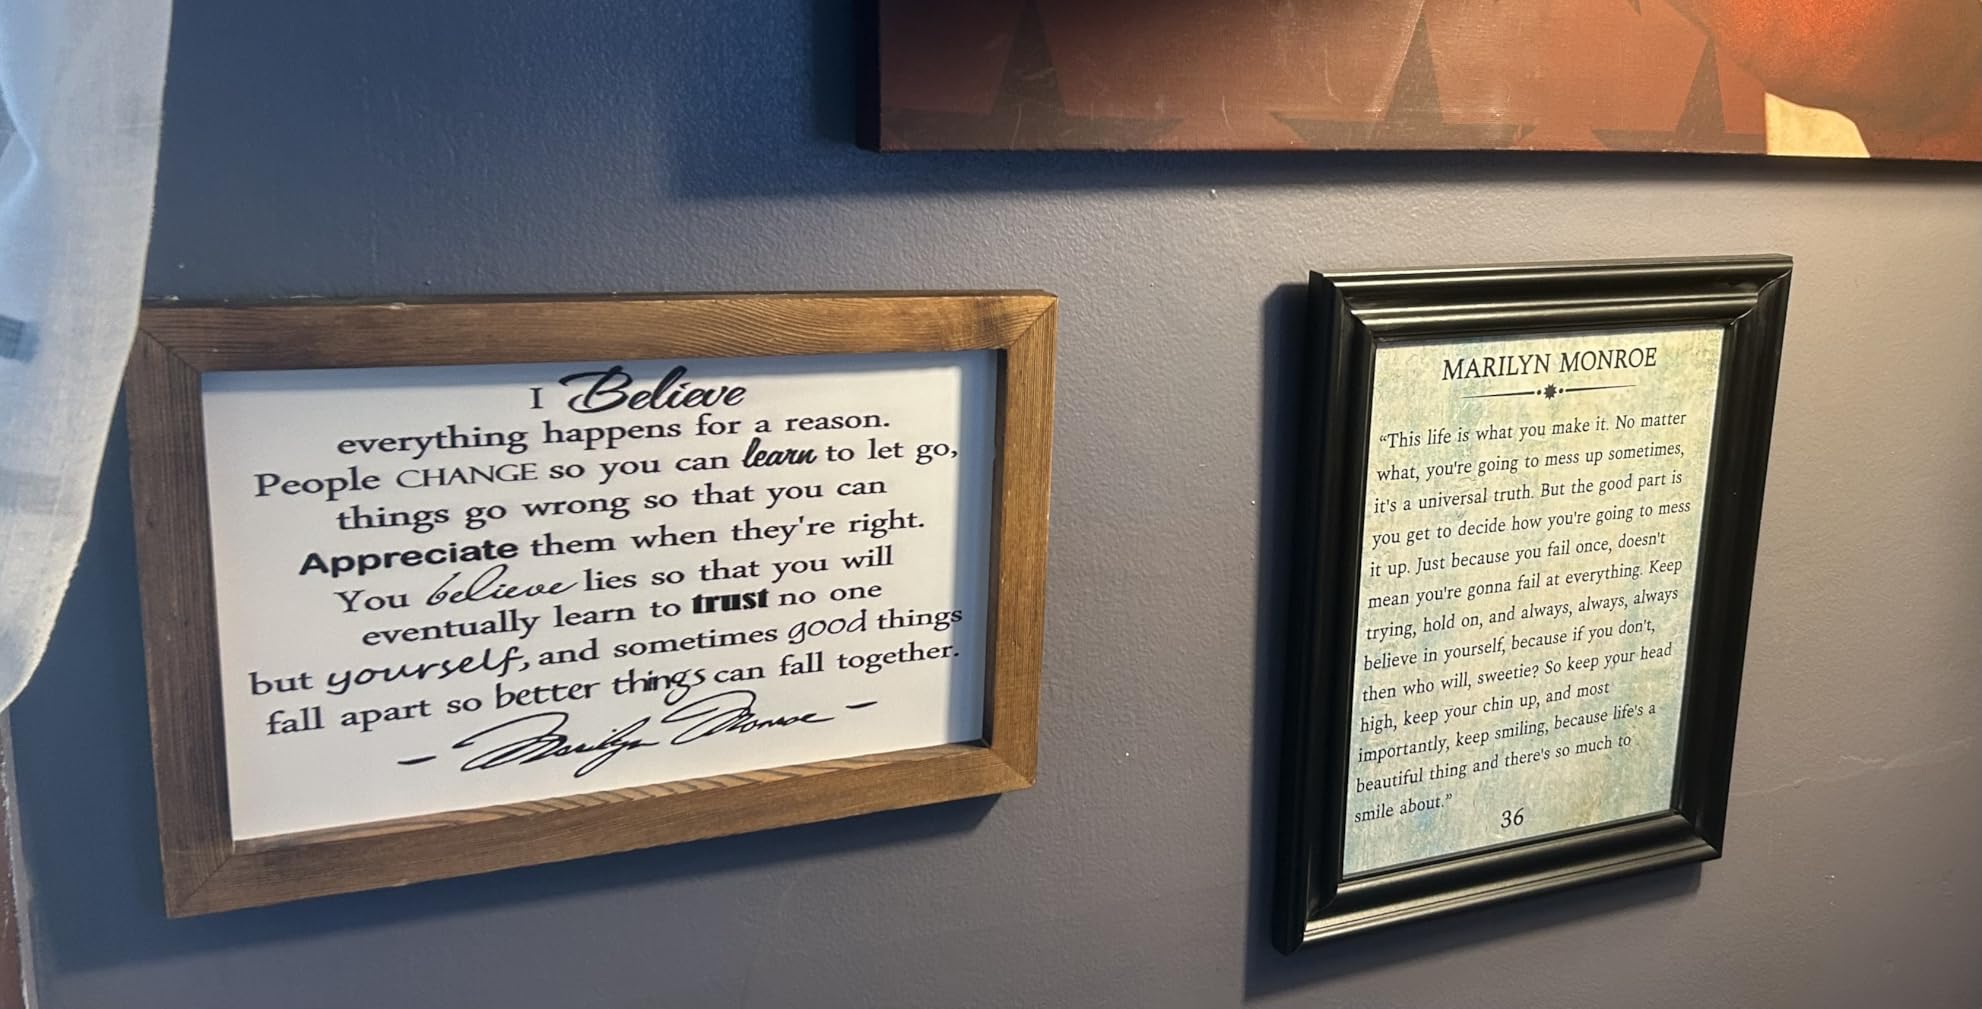 I Believe
everything happens for a reason.
People CHANGE so you can learn to let go,
things go wrong so that you can
Appreciate them when they're right.
You believe lies so that you will
eventually learn to trust no one
but yourself, and sometimes good things
fall apart so better things can fall together.
- Marilyn Monroe -
MARILYN MONROE
“This life is what you make it. No matter
what, you're going to mess up sometimes,
it's a universal truth. But the good part is
you get to decide how you're going to mess
it up. Just because you fail once, doesn't
mean you're gonna fail at everything. Keep
trying, hold on, and always, always, always
believe in yourself, because if you don't,
then who will, sweetie? So keep your head
high, keep your chin up, and most
importantly, keep smiling, because life's a
beautiful thing and there's so much to
smile about.”
36